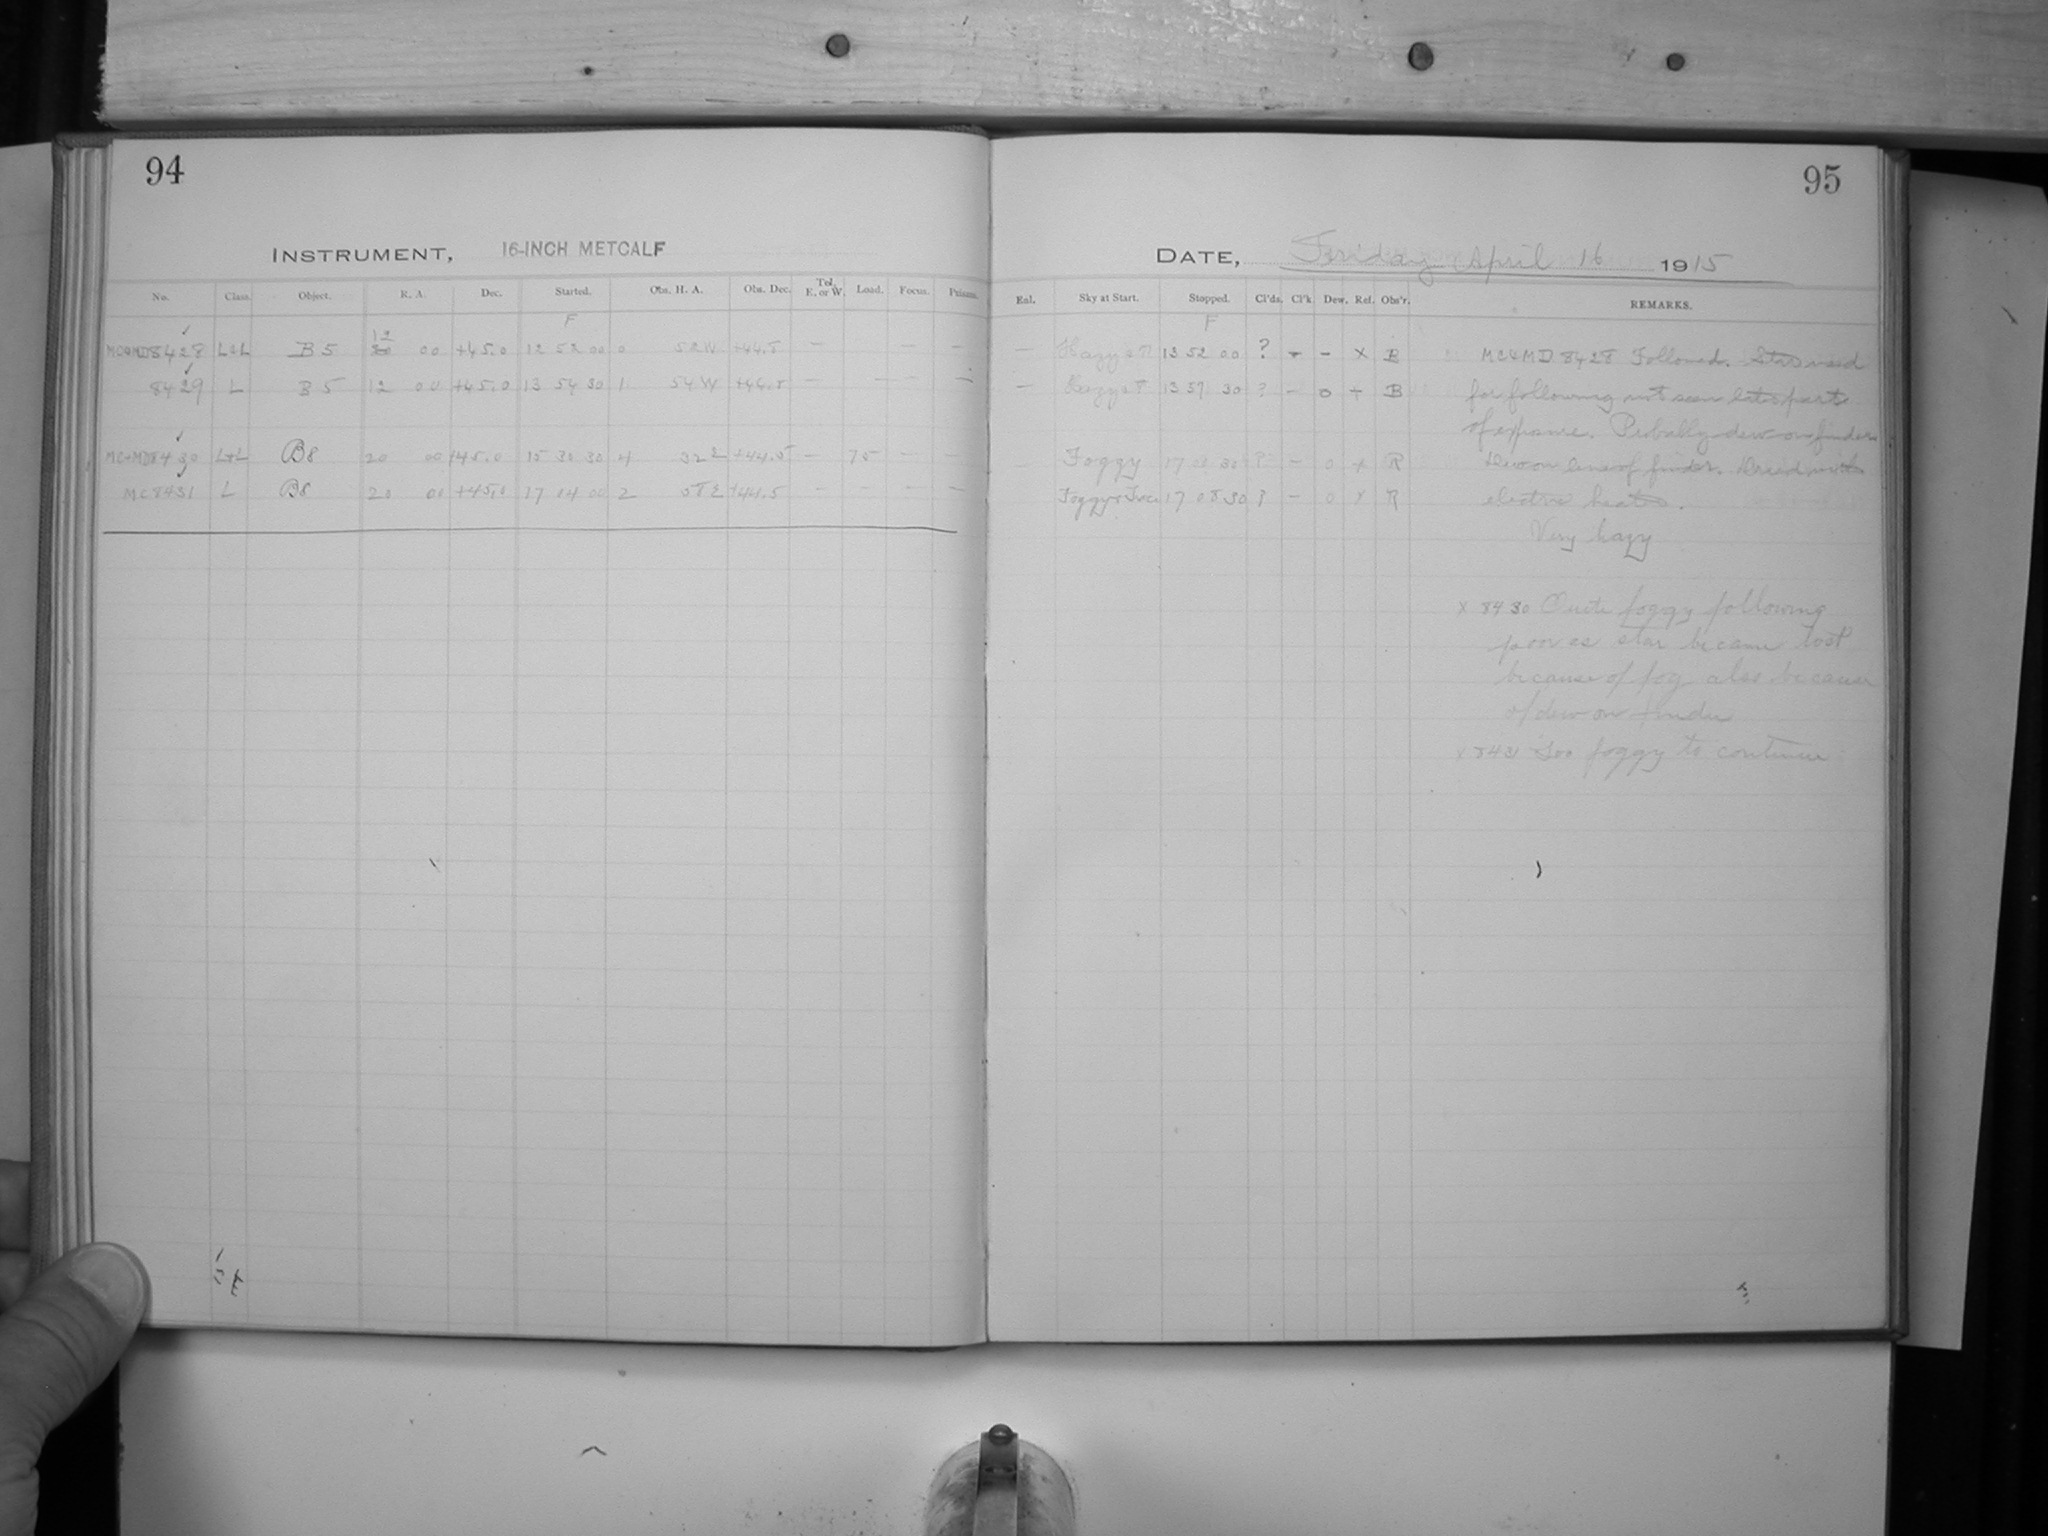 94
INSTRUMENT, 16-INCH METCALF
No. Class. Object. R. A. Dec. Started. Obs. H. A. Obs. Dec. Tel. E. or W. Load. Focus. Prisms.
F
12
MC&MD8428 L&L B5 00 +45.0 12 52 00 0 52W +44.5 — — —
8429 L B5 12 00 +45.0 13 54 30 1 54W — —
MC&MD8430 L&L B8 20 00 +45.0 15 30 30 4 32E +44.5 — 75 — —
MC8431 L B8 20 00 +45.0 17 04 00 2 58E +44.5 — — — —
95
DATE, Friday April 16 1915
Enl. Sky at Start. Stopped. Cl'ds. Cl'k. Dew. Ref. Obs'r. REMARKS.
F
— Hazy 13 52 00 ? - x B MC&MD 8428 Followed. Star used
— 13 57 30 ? - 0 + B for following not seen later part
of exposure. Probably dew on finder
Foggy 17 30 ? - 0 + R Dew on lens of finder. Dried with
Foggy 17 08 30 ? - 0 x R electric heater.
Very hazy
x 8430 Quite foggy following
poor as star became lost
because of fog also because
of dew on finder
x 8431 Too foggy to continue